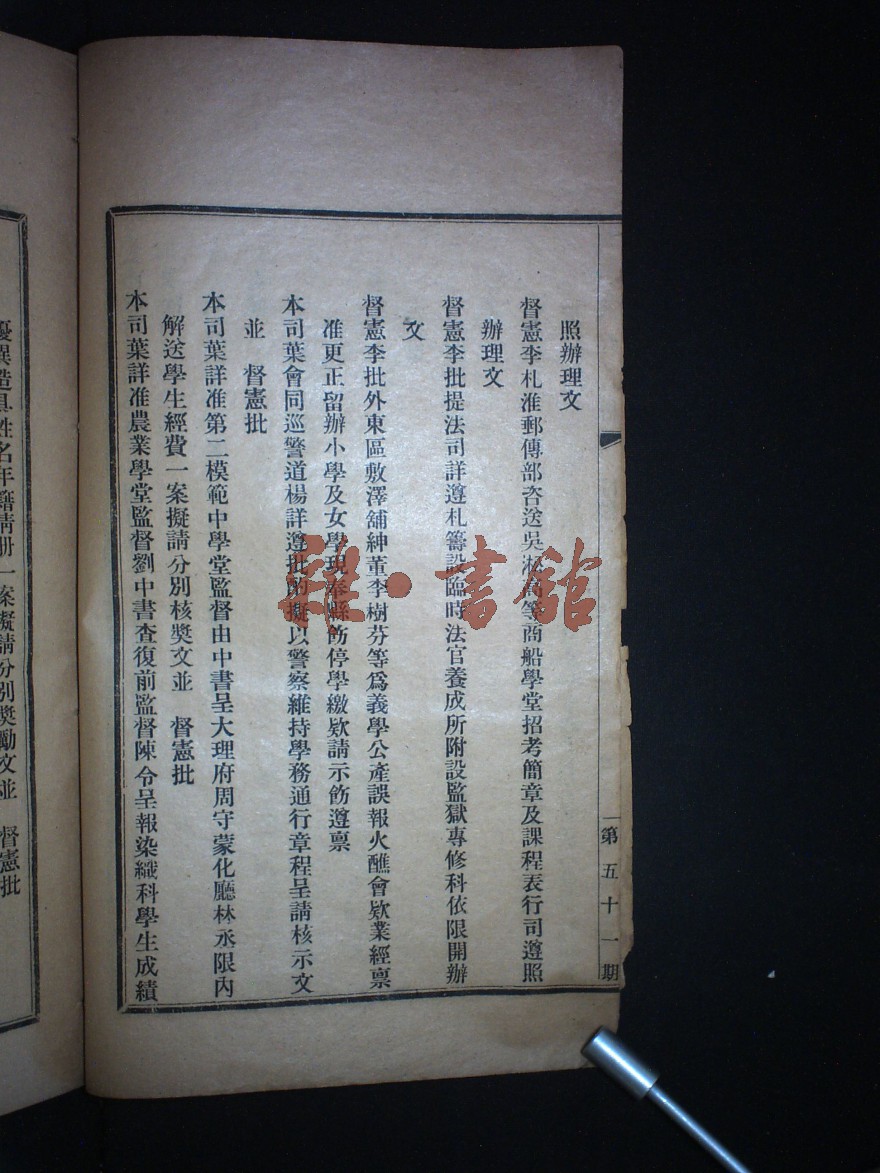 第五十一期
照辦理文
督憲李札准郵傳部咨送吳淞高等商船學堂招考簡章及課程表行司遵照
辦理文
督憲李批提法司詳遵札籌設臨時法官養成所附設監獄專修科依限開辦
文
督憲李批外東區敷澤舖紳董李樹芬等爲義學公產誤報火醮會欵業經禀
准更正留辦小學及女學現奉縣飭停學繳欵請示飭遵禀
本司葉會同巡警道楊詳遵批酌擬以警察維持學務通行章程呈請核示文
並　督憲批
本司葉詳准第二模範中學堂監督由中書呈大理府周守蒙化廳林丞限內
解送學生經費一案擬請分別核獎文並　督憲批
本司葉詳准農業學堂監督劉中書查復前監督陳令呈報染織科學生成績
優異造具姓名年籍清册一案擬請分別獎勵文並　督憲批
雜·書館